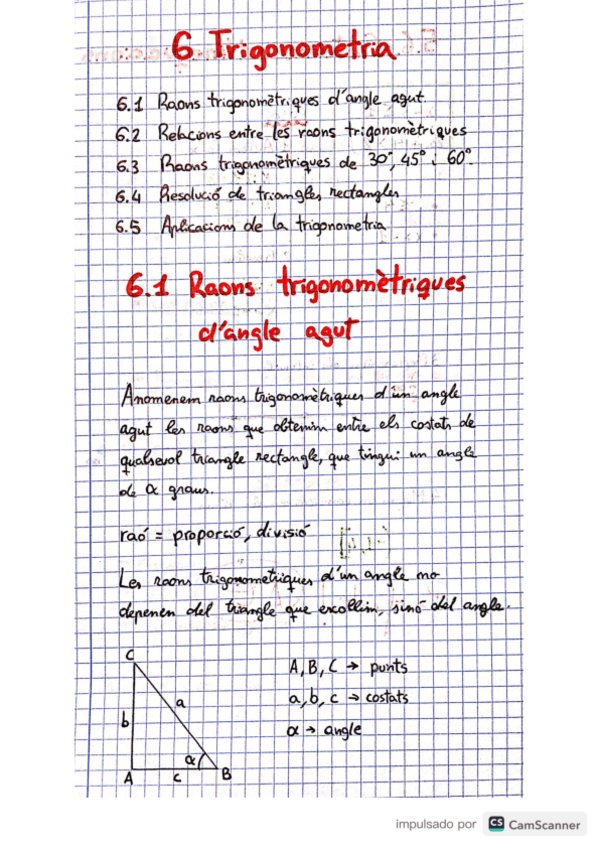 6 Trigonometria
6.1 Raons trigonomètriques d'angle agut.
6.2 Relacions entre les raons trigonomètriques
6.3 Raons trigonomètriques de 30°, 45° i 60°.
6.4 Resolució de triangles rectangles
6.5 Aplicacions de la trigonometria
6.1 Raons trigonomètriques
d'angle agut
Anomenem raons trigonomètriques d'un angle
agut les raons que obtenim entre els costats de
qualsevol triangle rectangle, que tingui un angle
de α graus.
raó = proporció, divisió
Les raons trigonometriques d'un angle no
depenen del triangle que escollim, sinó del angle.
C
A, B, C → punts
a
a, b, c → costats
b
α → angle
α
A c B
impulsado por CS CamScanner